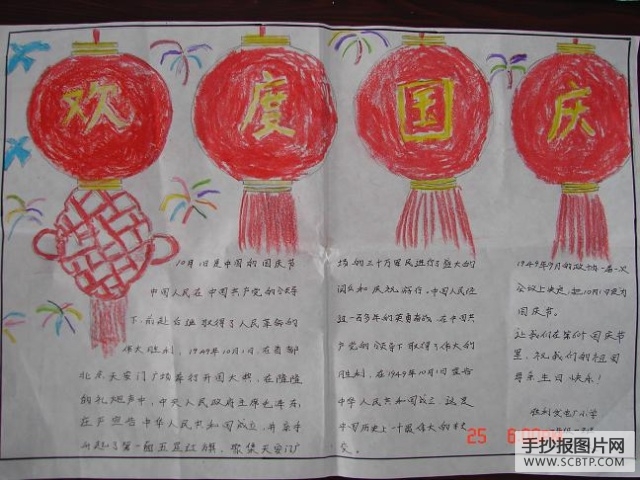 欢度国庆
10月1日是中国的国庆节
中国人民在中国共产党的领导
下,前赴后继取得了人民革命的
伟大胜利,1949年10月1日,在首都
北京天安门广场举行开国大典,在隆隆
的礼炮声中,中央人民政府主席毛泽东,
在庄严宣告中华人民共和国成立,并亲手
升起了第一面五星红旗。聚集天安门广
场的三十万军民进行了盛大的
阅兵和庆祝游行。中国人民经
过一百多年的英勇奋战,在中国共
产党的领导下取得了伟大的
胜利,在1949年10月1日宣告
中华人民共和国成立,这是
中国历史上一个最伟大的转
变。
1949年9月的政协一届一次
会议上决定,把10月1日定为
国庆节。
让我们在第61个国庆节
里,祝我们的祖国
母亲生日快乐!
胜利发电厂小学
25
手抄报图片网
WWW.SCBTP.COM